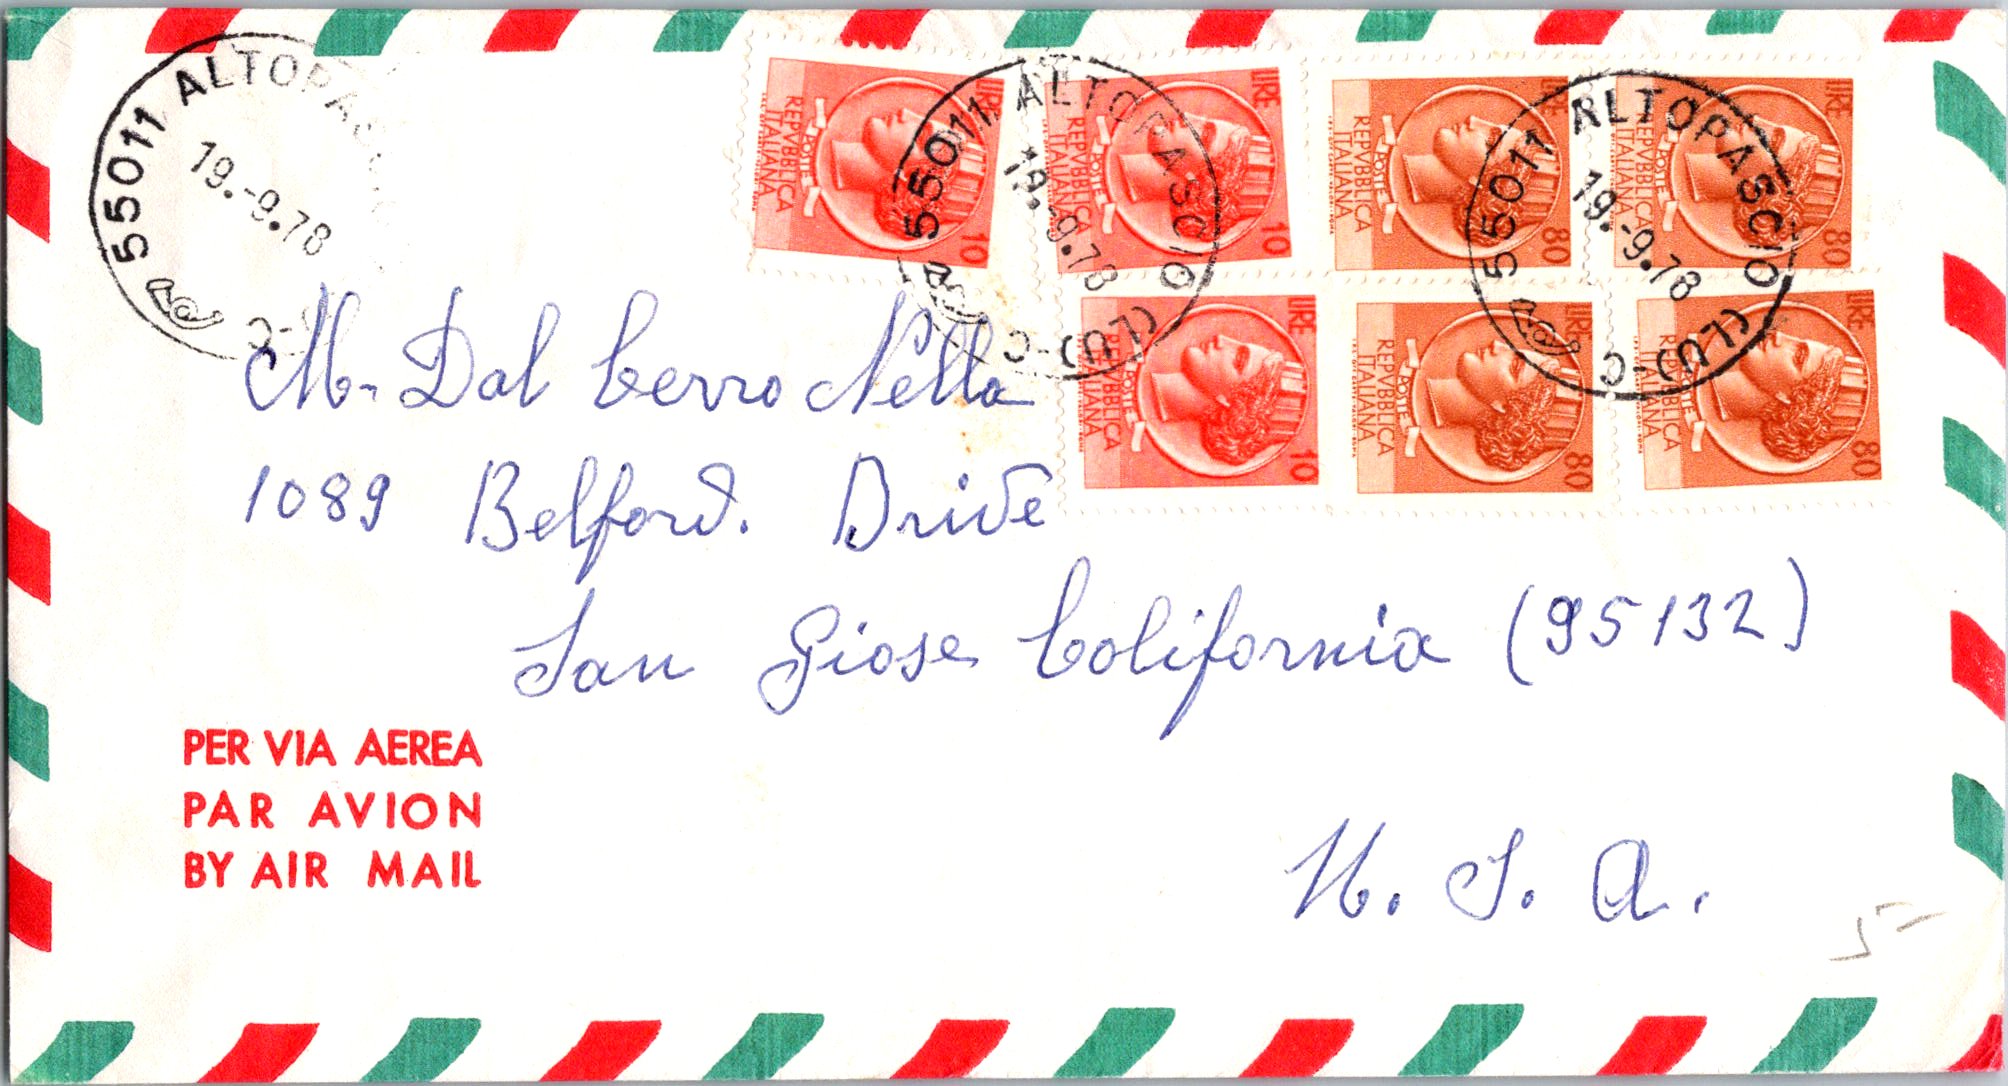 55011 ALTOPASCIO
19.-9.78
LIRE 10
POSTE
REPVBBLICA
ITALIANA
LIRE 10
POSTE
REPVBBLICA
ITALIANA
LIRE 80
POSTE
REPVBBLICA
ITALIANA
LIRE 80
POSTE
REPVBBLICA
ITALIANA
55011 ALTOPASCIO (LU)-C
19.-9.78
55011 ALTOPASCIO (LU)-C
19.-9.78
LIRE 10
POSTE
REPVBBLICA
ITALIANA
LIRE 80
POSTE
REPVBBLICA
ITALIANA
LIRE 80
POSTE
REPVBBLICA
ITALIANA
M- Dal Cerro Nella
1089 Belford. Drive
San Giose California (95132)
PER VIA AEREA
PAR AVION
BY AIR MAIL
U. S. A.
5-